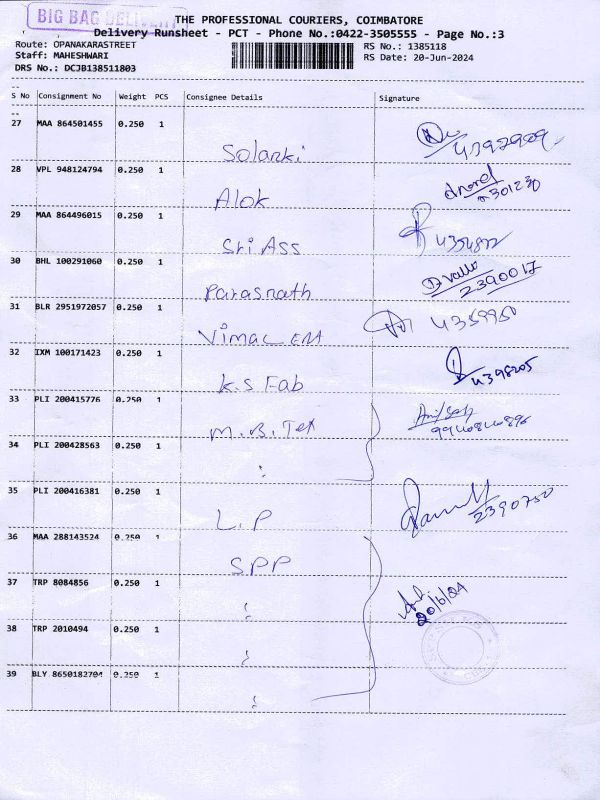 BIG BAG DELIVERY
THE PROFESSIONAL COURIERS, COIMBATORE
Delivery Runsheet - PCT - Phone No.:0422-3505555 - Page No.:3
Route: OPANAKARASTREET
RS No.: 1385118
Staff: MAHESHWARI
RS Date: 20-Jun-2024
DRS No.: DCJB138511803
S No Consignment No Weight PCS Consignee Details Signature
27 MAA 864501455 0.250 1
Solanki
28 VPL 948124794 0.250 1
Alok
301230
29 MAA 864496015 0.250 1
Sri Ass
30 BHL 100291060 0.250 1
Parasnath
2390017
31 BLR 2951972057 0.250 1
Vimal
4359950
32 IXM 100171423 0.250 1
K.S Fab
4398205
33 PLI 200415776 0.250 1
M.B.Tex
34 PLI 200428563 0.250 1
35 PLI 200416381 0.250 1
L.P
2390750
36 MAA 288143524 0.250 1
SPP
37 TRP 8084856 0.250 1
20/6/24
38 TRP 2010494 0.250 1
39 BLY 8650182704 0.250 1